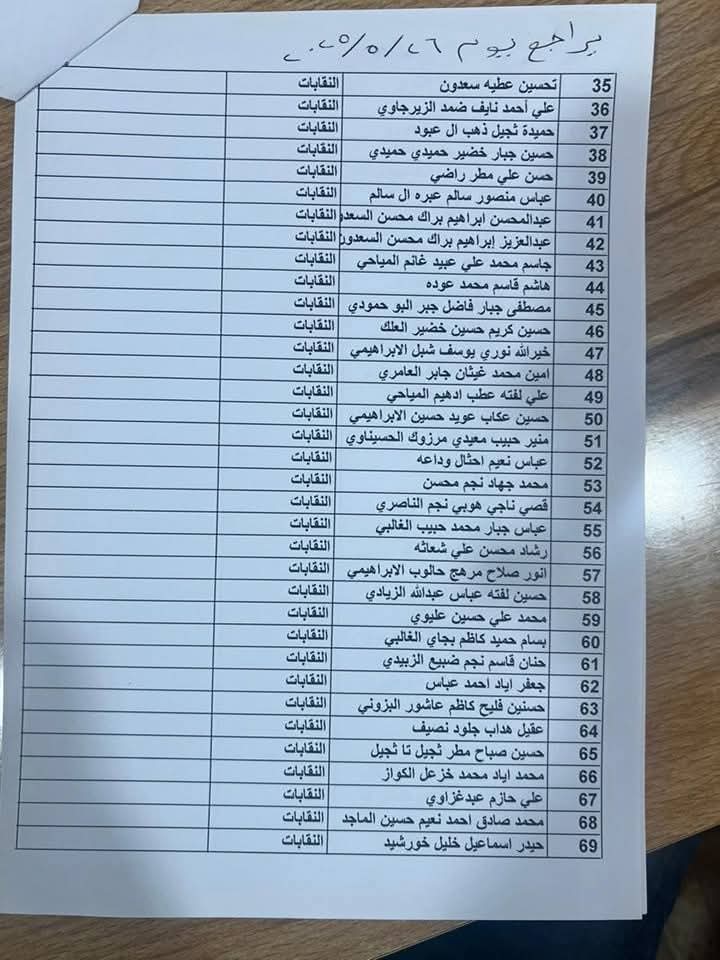 يراجع يوم ٢٠٢٥/٥/٢٦
35 تحسين عطيه سعدون النقابات
36 علي أحمد نايف ضمد الزيرجاوي النقابات
37 حميدة ثجيل ذهب ال عبود النقابات
38 حسين جبار خضير حميدي حميدي النقابات
39 حسن علي مطر راضي النقابات
40 عباس منصور سالم عبره ال سالم النقابات
41 عبدالمحسن ابراهيم براك محسن السعدو النقابات
42 عبدالعزيز إبراهيم براك محسن السعدون النقابات
43 جاسم محمد علي عبيد غانم المياحي النقابات
44 هاشم قاسم محمد عوده النقابات
45 مصطفى جبار فاضل جبر البو حمودي النقابات
46 حسين كريم حسين خضير العلك النقابات
47 خيرالله نوري يوسف شبل الابراهيمي النقابات
48 امين محمد غيثان جابر العامري النقابات
49 علي لفته عطب ادهيم المياحي النقابات
50 حسين عكاب عويد حسين الابراهيمي النقابات
51 منير حبيب معيدي مرزوك الحسيناوي النقابات
52 عباس نعيم احثال وداعه النقابات
53 محمد جهاد نجم محسن النقابات
54 قصي ناجي هوبي نجم الناصري النقابات
55 عباس جبار محمد حبيب الغالبي النقابات
56 رشاد محسن علي شعاثه النقابات
57 انور صلاح مرهج حالوب الابراهيمي النقابات
58 حسين لفته عباس عبدالله الزيادي النقابات
59 محمد علي حسين عليوي النقابات
60 بسام حميد كاظم بجاي الغالبي النقابات
61 حنان قاسم نجم ضبيع الزبيدي النقابات
62 جعفر اياد احمد عباس النقابات
63 حسنين فليح كاظم عاشور البزوني النقابات
64 عقيل هداب جلود نصيف النقابات
65 حسين صباح مطر ثجيل تا ثجيل النقابات
66 محمد اياد محمد خزعل الكواز النقابات
67 علي حازم عبدغزاوي النقابات
68 محمد صادق احمد نعيم حسين الماجد النقابات
69 حيدر اسماعيل خليل خورشيد النقابات